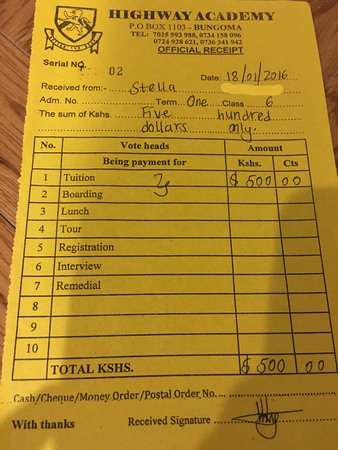 HIGHWAY ACADEMY
P.O BOX 1103 - BUNGOMA
TEL: 7025 593 988, 0734 158 096
0724 928 621, 0736 341 942
OFFICIAL RECEIPT
Serial NO. 02
Date: 18/01/2016
Received from:- Stella
Adm. No. Term One Class 6
The sum of Kshs. Five hundred
dollars only.
No. Vote heads Amount
Being payment for Kshs. Cts
1 Tuition $ 500 00
2 Boarding
3 Lunch
4 Tour
5 Registration
6 Interview
7 Remedial
8
9
10
TOTAL KSHS. $ 500 00
Cash/Cheque/Money Order/Postal Order No.
With thanks Received Signature